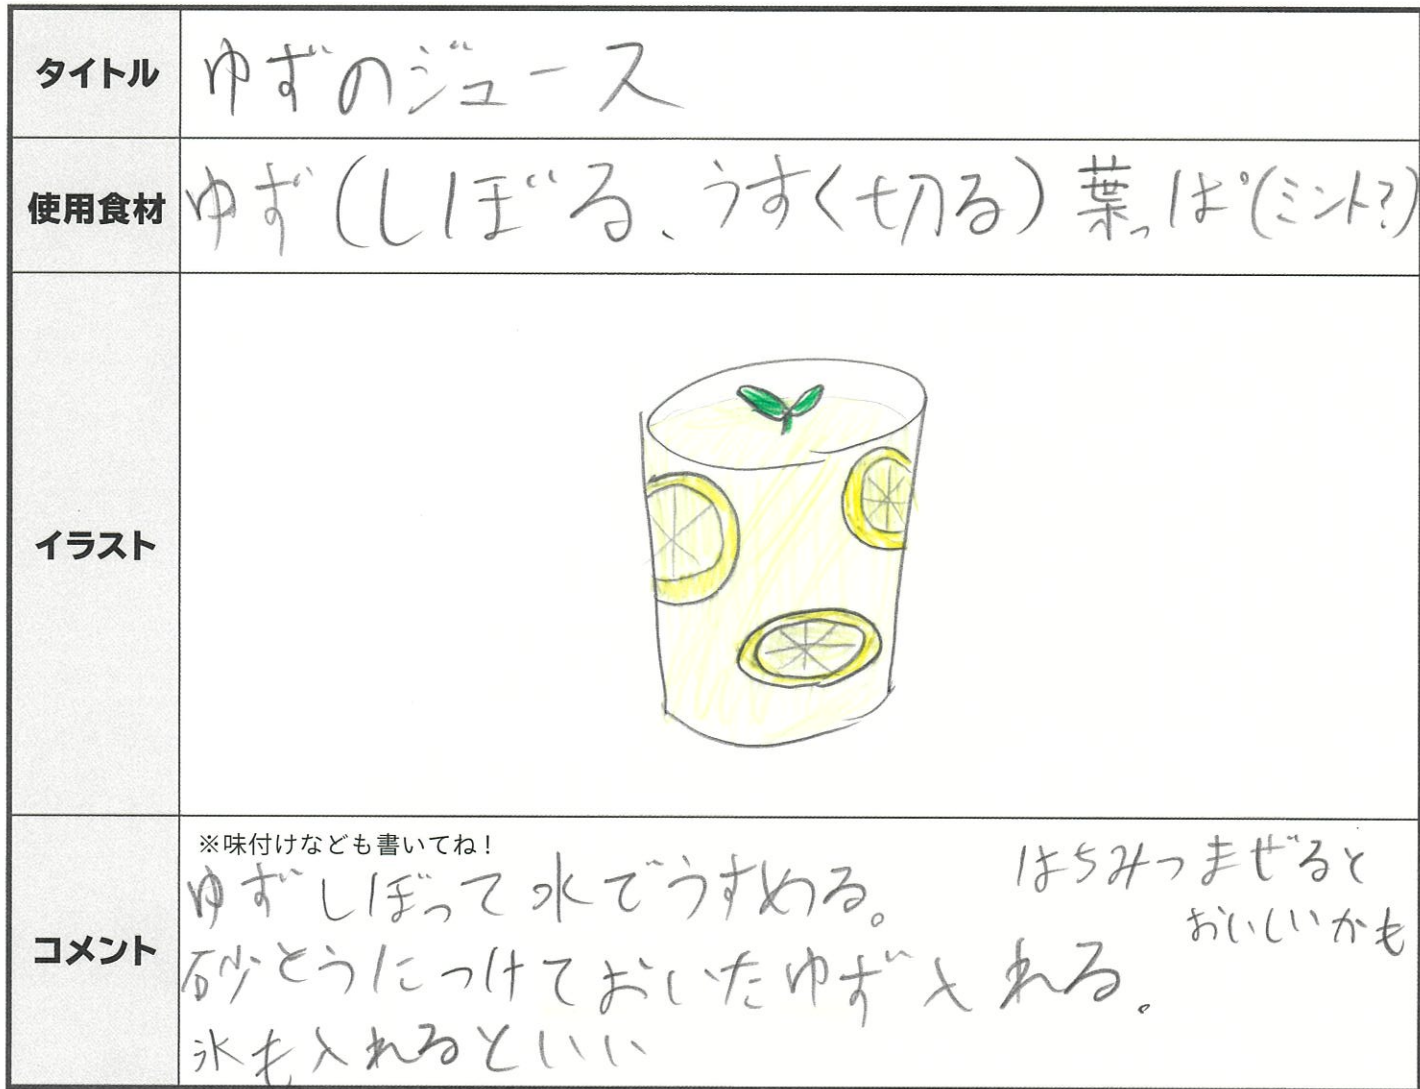 タイトル
ゆずのジュース
使用食材
ゆず(しぼる、うすく切る)葉っぱ(ミント?)
イラスト
コメント
※味付けなども書いてね!
ゆずしぼって水でうすめる。
砂とうにつけておいたゆず入れる。
氷も入れるといい
はちみつまぜると
おいしいかも